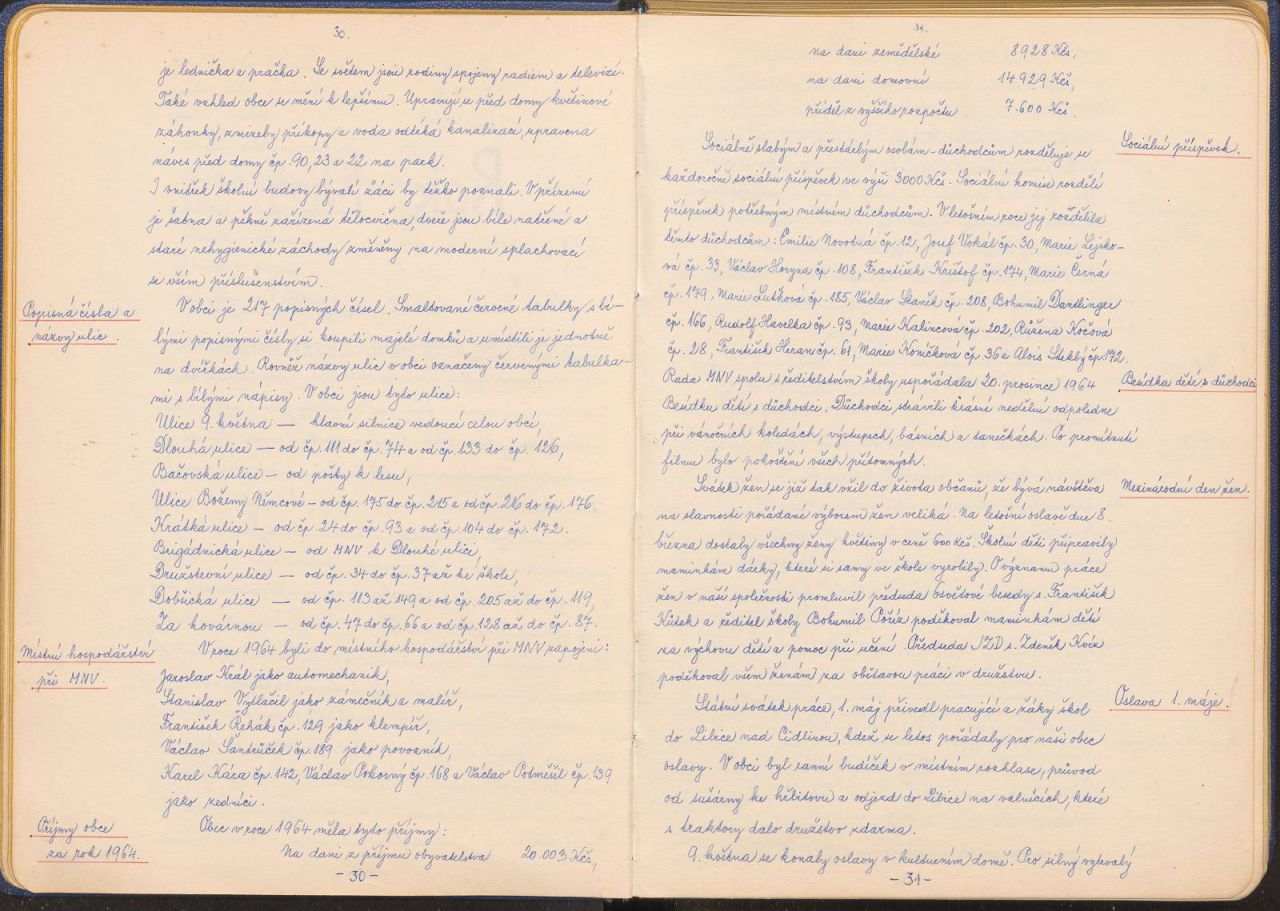 30.
je lednička a pračka. Se světem jsou rodiny spojeny radiem a televizí.
Také vzhled obce se mění k lepšímu. Upravují se před domy květinové
záhonky, zmizely příkopy a voda odtéká kanalizací, upravena
náves před domy čp. 90, 23 a 22 na park.
I vnitřek školní budovy bývalí žáci by těžko poznali. V přízemí
je šatna a pěkně zařízená tělocvična, dveře jsou bíle natřené a
staré nehygienické záchody změněny na moderní splachovací
se vším příslušenstvím.
Popisná čísla a
názvy ulic.
V obci je 217 popisných čísel. Smaltované červené tabulky s bí-
lými popisnými čísly si koupili majelé domků a umístili je jednotně
na dvířkách. Rovněž názvy ulic v obci označeny červenými tabulka-
mi s bílými nápisy. V obci jsou tyto ulice:
Ulice 9. května - hlavní silnice vedoucí celou obcí,
Dlouhá ulice - od čp. 111 do čp. 74 a od čp. 133 do čp. 126,
Bačovská ulice - od pošty k lesu,
Ulice Boženy Němcové - od čp. 175 do čp. 215 a od čp. 216 do čp. 176.
Krátká ulice - od čp. 24 do čp. 93 a od čp. 104 do čp. 172.
Brigádnická ulice - od MNV k Dlouhé ulici,
Družstevní ulice - od čp. 34 do čp. 37 až ke škole,
Dobšická ulice - od čp. 113 až 149 a od čp. 205 až do čp. 119,
Za kovárnou - od čp. 47 do čp. 66 a od čp. 128 až do čp. 87.
Místní hospodářství
při MNV.
V roce 1964 byli do místního hospodářství při MNV zapojeni:
Jaroslav Král jako automechanik,
Stanislav Vytlačil jako zámečník a malíř,
František Řehák čp. 129 jako klempíř,
Václav Šantrůček čp. 189 jako povozník,
Karel Kára čp. 142, Václav Pokorný čp. 168 a Václav Potměšil čp. 139
jako zedníci.
Příjmy obce
za rok 1964.
Obec v roce 1964 měla tyto příjmy:
Na dani z příjmu obyvatelstva 20.003 Kčs,
- 30 -
31.
na dani zemědělské 8928 Kčs,
na dani domovní 14929 Kčs,
příděl z vyššího rozpočtu 7.600 Kčs.
Sociální příspěvek.
Sociálně slabým a přestárlým osobám - důchodcům rozděluje se
každoročně sociální příspěvek ve výši 3000 Kčs. Sociální komise rozdělí
příspěvek potřebným místním důchodcům. V letošním roce jej rozdělila
těmto důchodcům: Emilie Novotná čp. 12, Josef Vokál čp. 30, Marie Lejsko-
vá čp. 33, Václav Horyna čp. 108, František Krištof čp. 174, Marie Černá
čp. 179, Marie Lušková čp. 185, Václav Staněk čp. 208, Bohumil Dantlinger
čp. 166, Rudolf Havelka čp. 93, Marie Kalincová čp. 202, Růžena Kočová
čp. 28, František Heran čp. 61, Marie Komíčková čp. 36 a Alois Steklý čp. 172.
Besídka dětí s důchodci
Rada MNV spolu s ředitelstvím školy uspořádala 20. prosince 1964
Besídku dětí s důchodci. Důchodci strávili krásné nedělní odpoledne
při vánočních koledách, výstupech, básních a tanečkách. Po promítnutí
filmu bylo pohoštění všech přítomných.
Mezinárodní den žen.
Svátek žen se již tak vžil do života občanů, že bývá návštěva
na slavnosti pořádané výborem žen veliká. Na letošní oslavě dne 8.
března dostaly všechny ženy květiny v ceně 600 Kčs. Školní děti připravily
maminkám dárky, které si samy ve škole vyrobily. O významu práce
žen v naší společnosti promluvil předseda Osvětové besedy s. František
Kůtek a ředitel školy Bohumil Pöříz poděkoval maminkám dětí
za výchovu dětí a pomoc při učení. Předseda JZD s. Zdeněk Kvíz
poděkoval všem ženám za obětavou práci v družstvu.
Oslava 1. máje.
Státní svátek práce, 1. máj přivedl pracující a žáky škol
do Libice nad Cidlinou, kdež se letos pořádaly pro naši obec
oslavy. V obci byl ranní budíček v místním rozhlase, průvod
od sušárny ke hřbitovu a odjezd do Libice na valnících, které
s traktory dalo družstvo zdarma.
9. května se konaly oslavy v kulturním domě. Pro silný vytrvalý
- 31 -